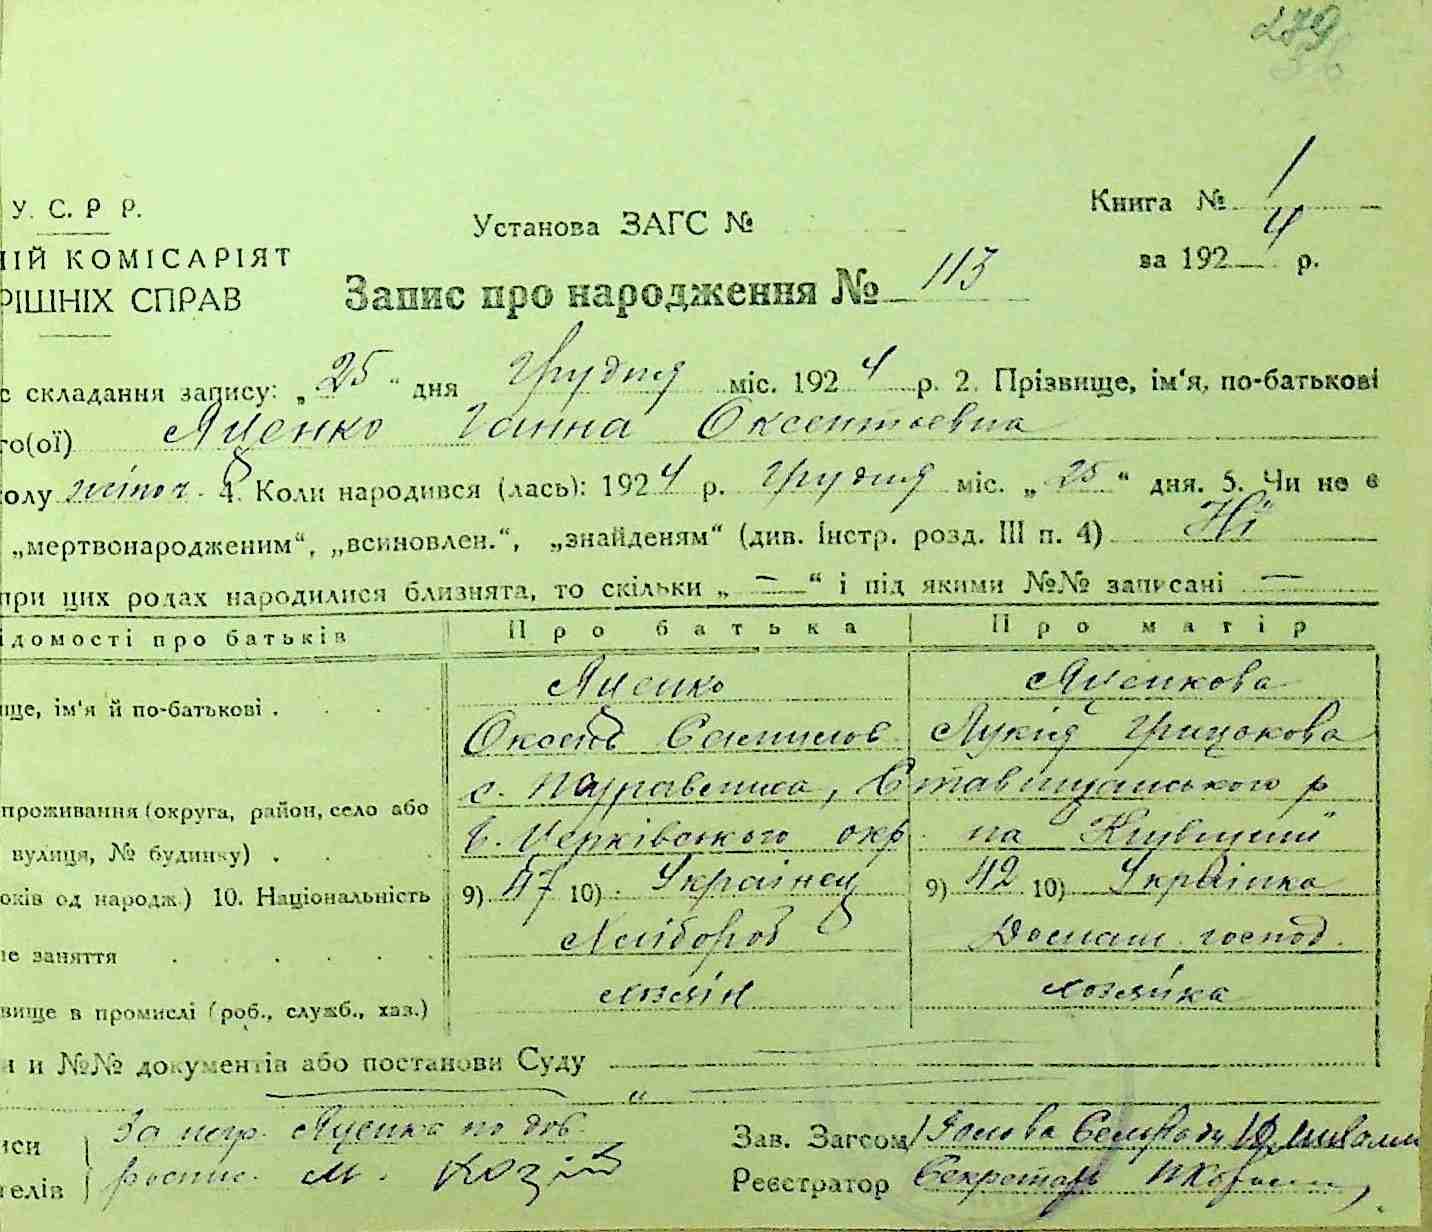 279
У. С. Р Р.
Установа ЗАГС №
Книга № 1
ІЙ КОМІСАРІЯТ
за 1924 р.
РІШНІХ СПРАВ
Запис про народження № 113
с складання запису: „25“ дня Грудня міс. 1924 р. 2. Прізвище, ім‘я, по-батькові
го(ої) Яценко Ганна Оксентьевна
олу жіноч. 4. Коли народився (лась): 1924 р. Грудня міс. „25“ дня. 5. Чи не є
„мертвонародженим“, „всиновлен.“, „знайденям“ (див. Інстр. розд. III п. 4) Ні
при цих родах народилися близнята, то скільки „—“ і під якими №№ записані —
ідомості про батьків Про батька Про матір
Яценко Яценкова
ще, ім‘я й по-батькові . Оксент Самилов Лукія Грицькова
с. Журавлиха, Ставищанського р
проживання (округа, район, село або
Б. Церківського окр. на Київщині
вулиця, № будинку) .
оків од народж.) 10. Національність 9) 47 10) Українец 9) 42 10) Українка
не заняття Хлібороб Домаш. господ.
вище в промислі (роб., служб., хаз.) хозяін хозяйка
и и №№ документів або постанови Суду
За негр. Яценка по дов.
иси Зав. Загсом Голова Сельради
розпис. М. Козій
телів Реєстратор Секретарь